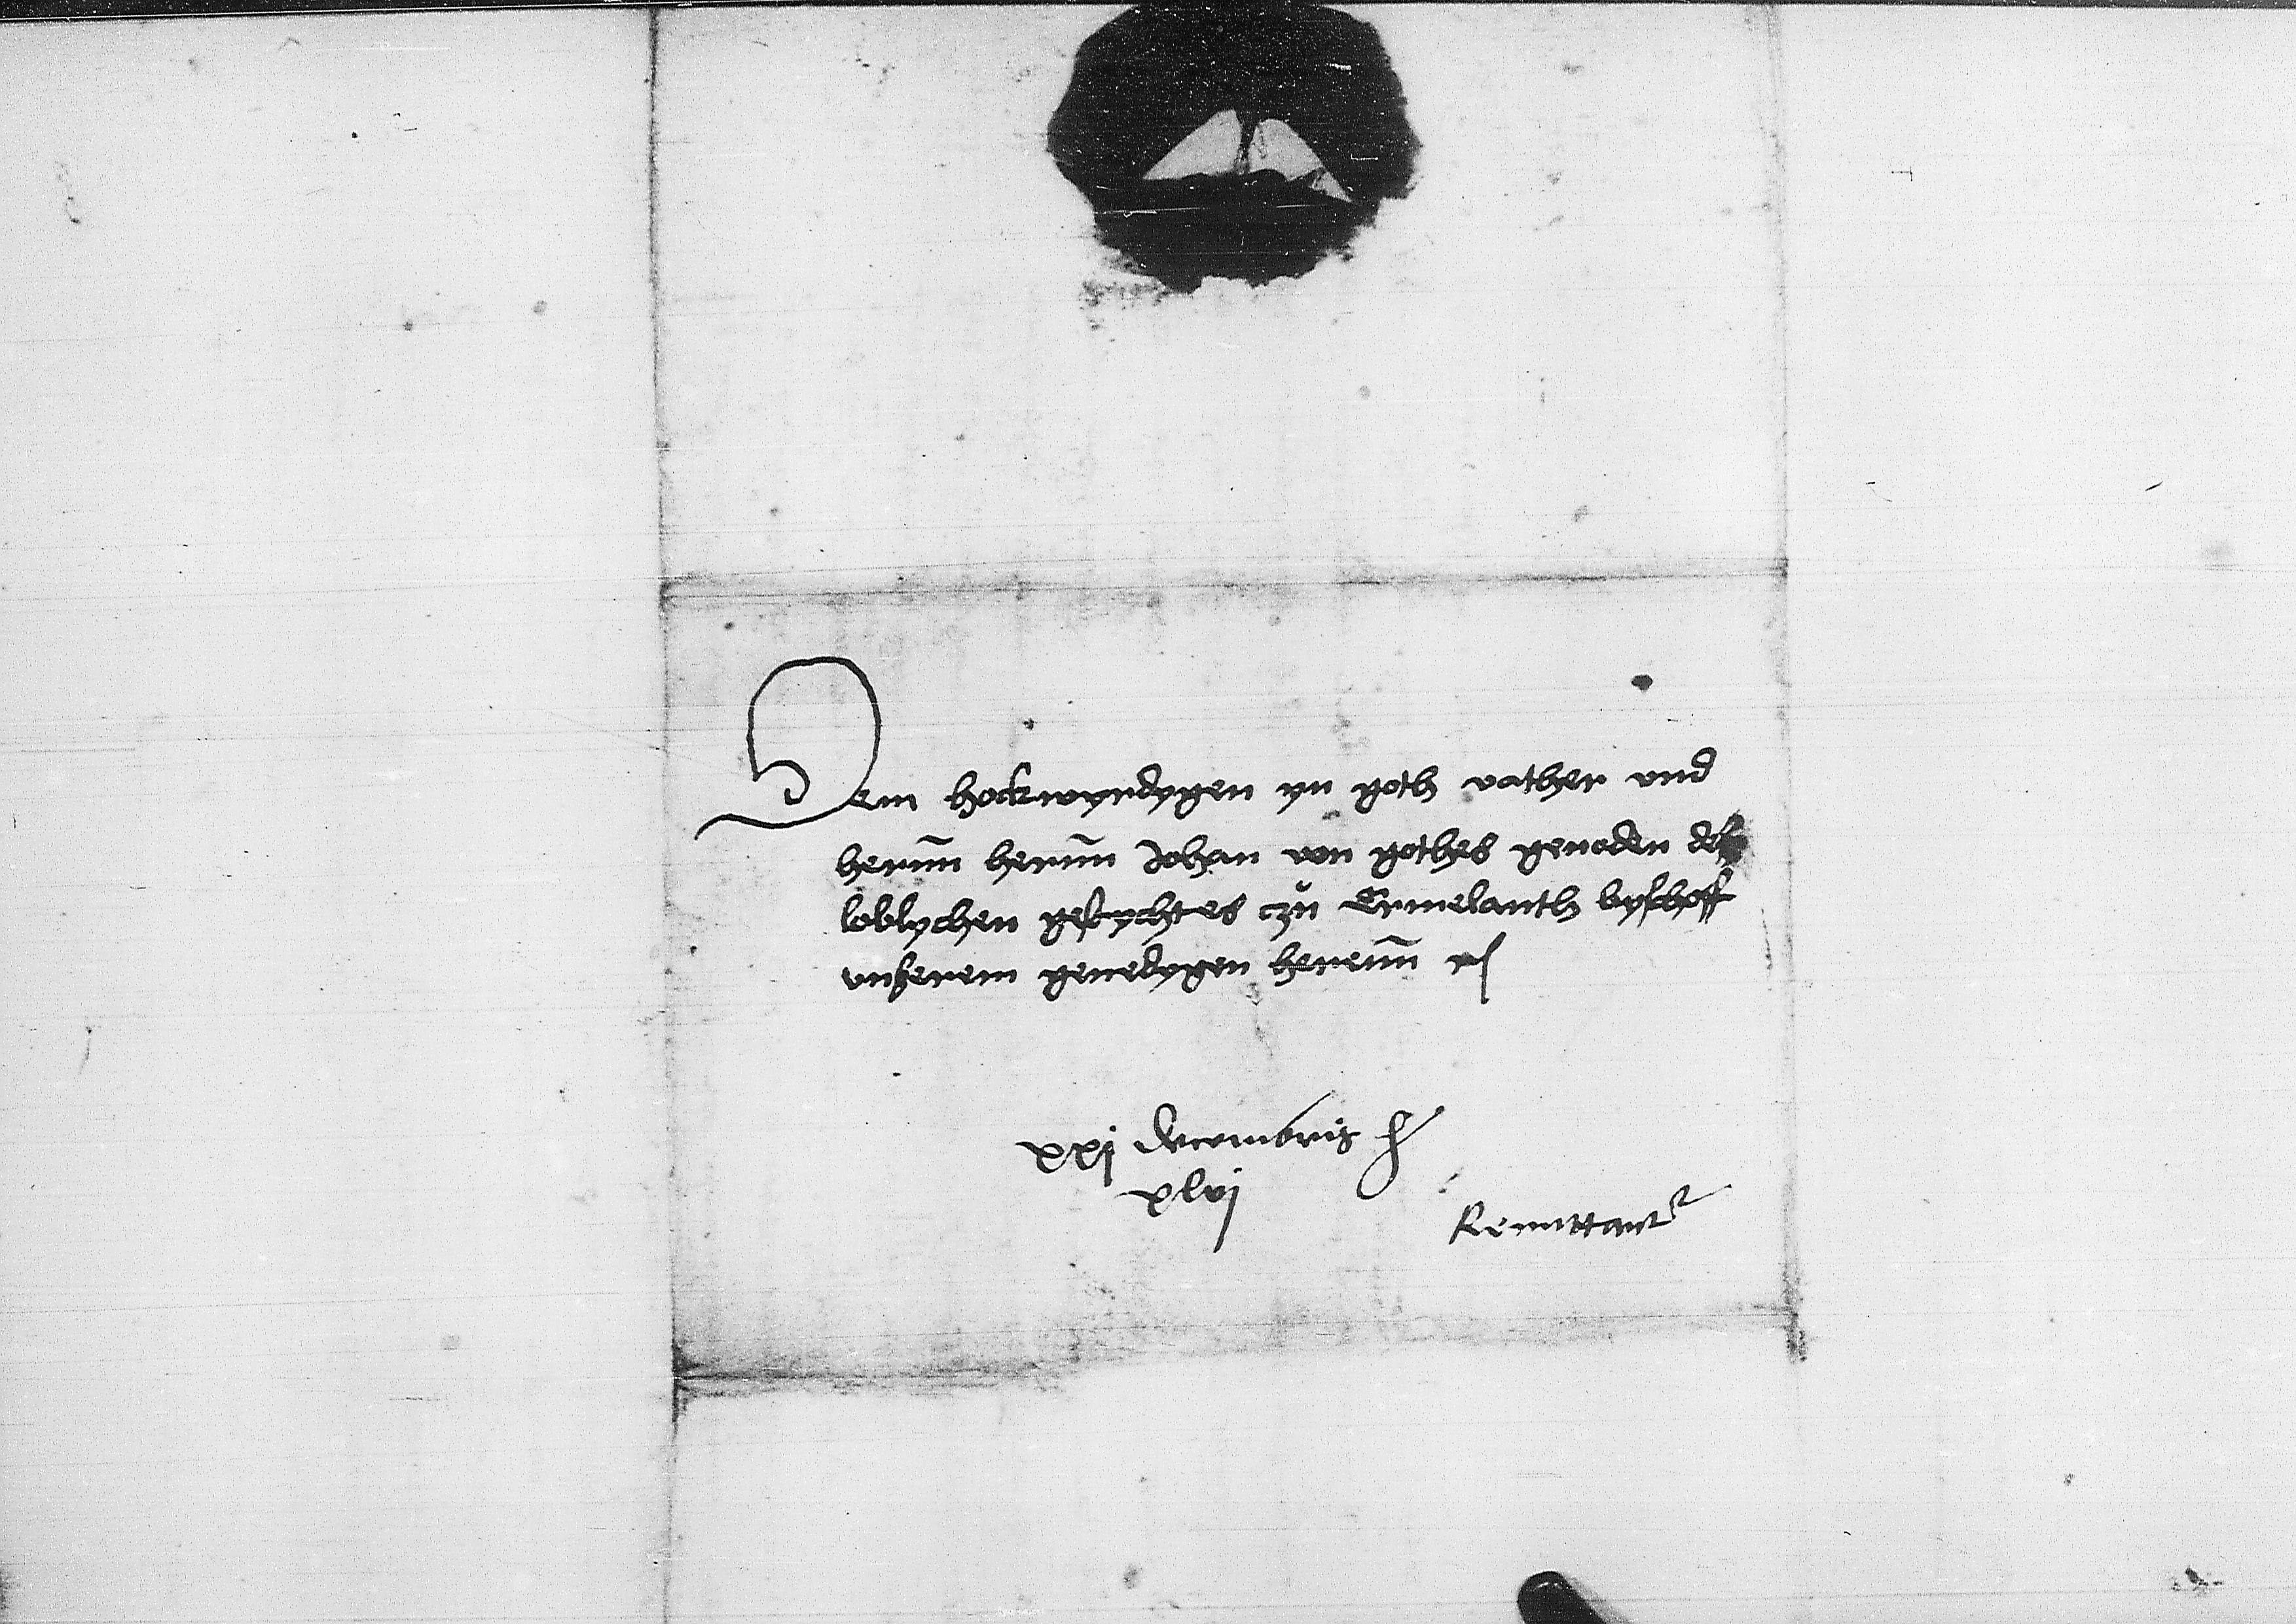 Dem hockwyrdygen yn goth vather und
hernn hernn Johan von gothes genaden deß
loblychen gestychtes czu Ermelanth byschoff
unßerem genedygen herenn
xxi decembris
xlvi
Remittantur